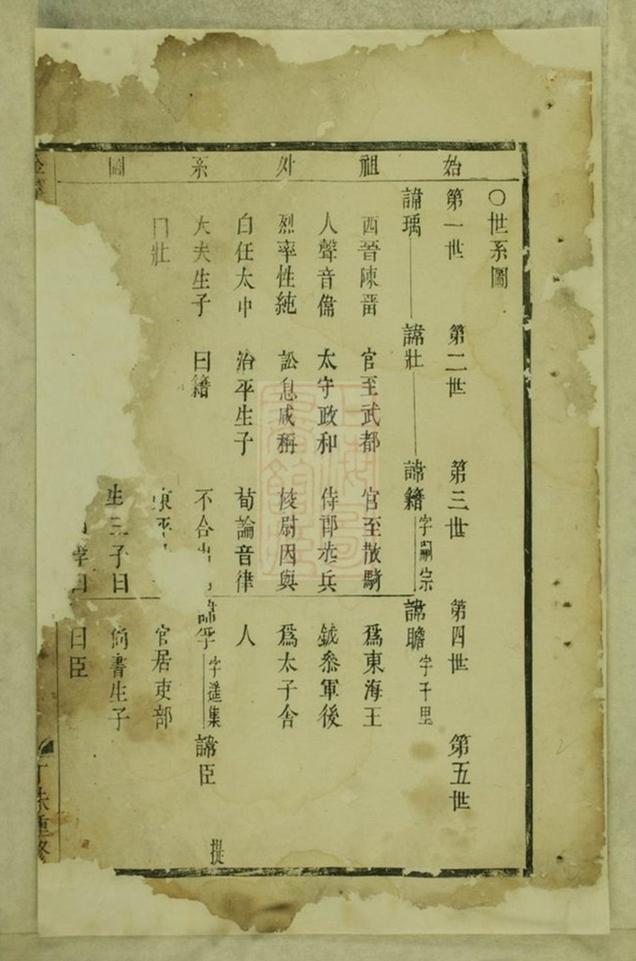 始祖外系圖
〇世系圖
第一世 第二世 第三世 第四世 第五世
諱瑀 諱壯 諱籍字嗣宗 諱瞻字千里
西晉陳畱 官至武都 官至散騎 爲東海王
人聲音傋 太守政和 侍郎步兵 鉞叅軍後
烈率性純 訟息咸稱 校尉因與 爲太子舍
白任太中 治平生子 荀論音律 人
大夫生子 曰籍 不合 諱孚字遥集 諱臣 提
曰壯 東平 官居吏部
生三子曰 尚書生子
曰 曰臣
丁未重修